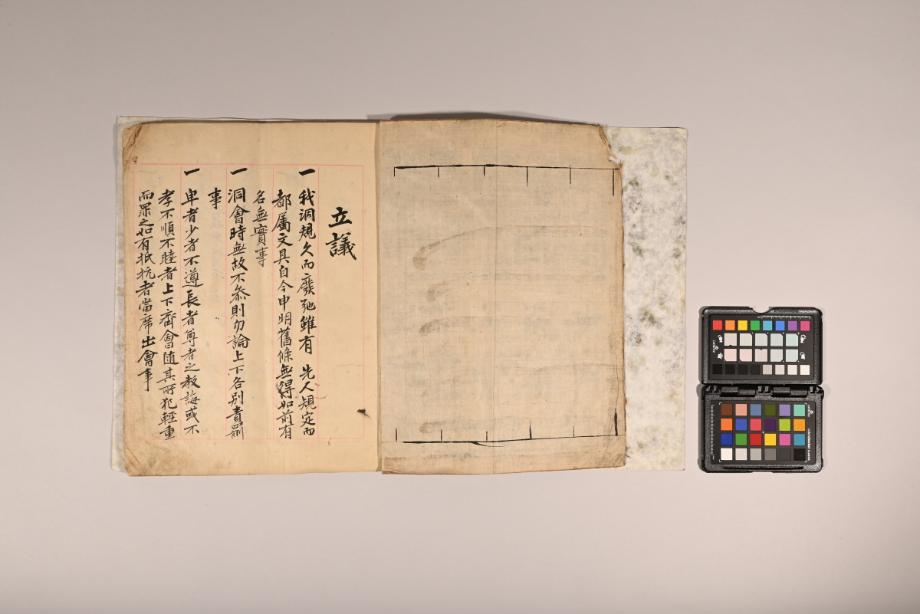 立議
一 我洞規久而廢弛雖有 先人規定而
都屬文具自今申明舊條無得如前有
名無實事
一 洞會時無故不參則勿論上下各別責罰
事
一 卑者少者不遵長者尊者之教誨或不
孝不順不睦者上下齊會隨其所犯輕重
而罪之如有抵抗者當席出會事